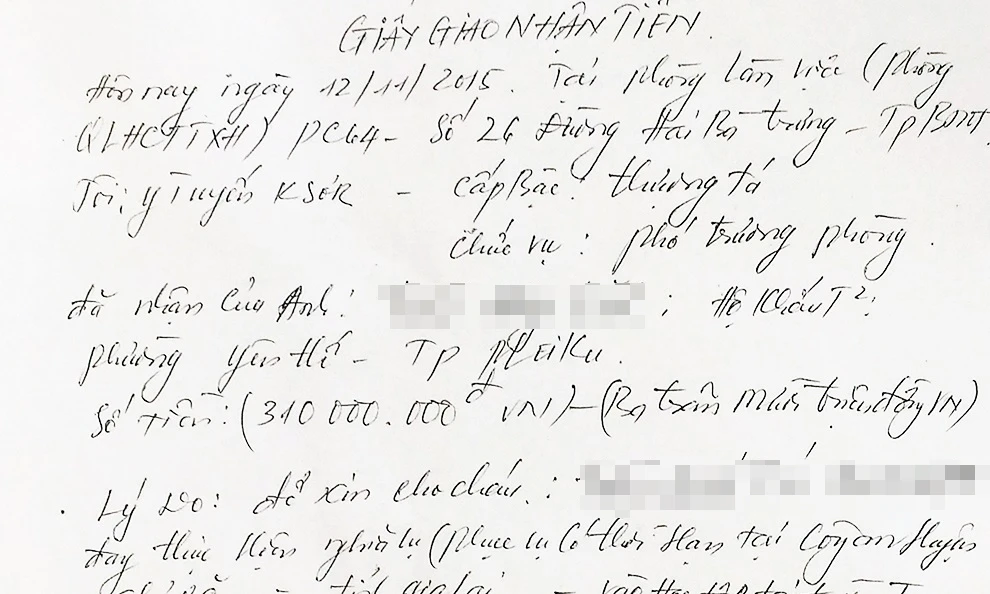 GIẤY GIAO NHẬN TIỀN.
Hôm nay ngày 12/11/2015. Tại phòng làm việc (phòng
QLHCTTXH) PC64 - Số 26 Đường Hai Bà Trưng - Tp BMT
Tôi: Y Tuyến KSƠR - Cấp Bậc: Thượng tá
Chức vụ: phó trưởng phòng.
đã nhận của Anh: ; Hộ Khẩu T²:
phường Yên Thế - Tp pleiKu.
Số tiền: (310 000.000đ VN) - (Ba trăm Mười triệu đồng VN)
Lý Do: để xin cho cháu:
đay thực Hiện nghĩa vụ (phục vụ Có thời Hạn tại Công an Huyện
tỉnh gia lai -